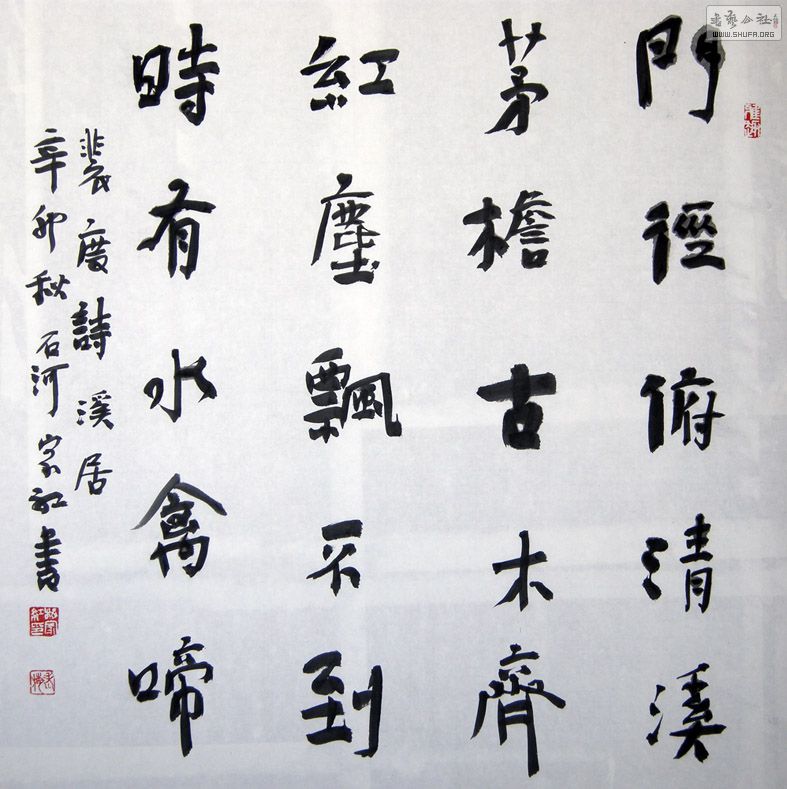 門徑俯清溪
茅檐古木齊
紅塵飄不到
時有水禽啼
裴度詩溪居
辛卯秋石河家紅書
書藝公社
WWW.SHUFA.ORG